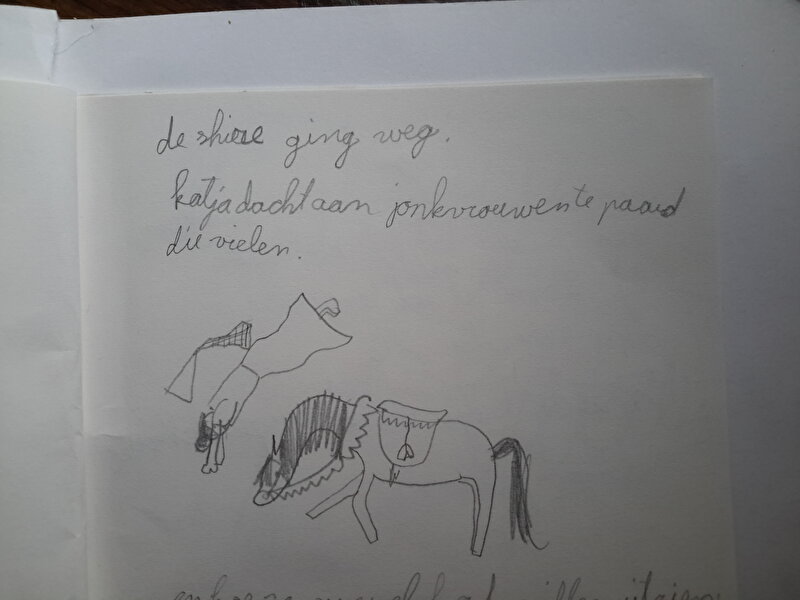 de shiere ging weg.
katja dacht aan jonkvrouwen te paard
die vielen.